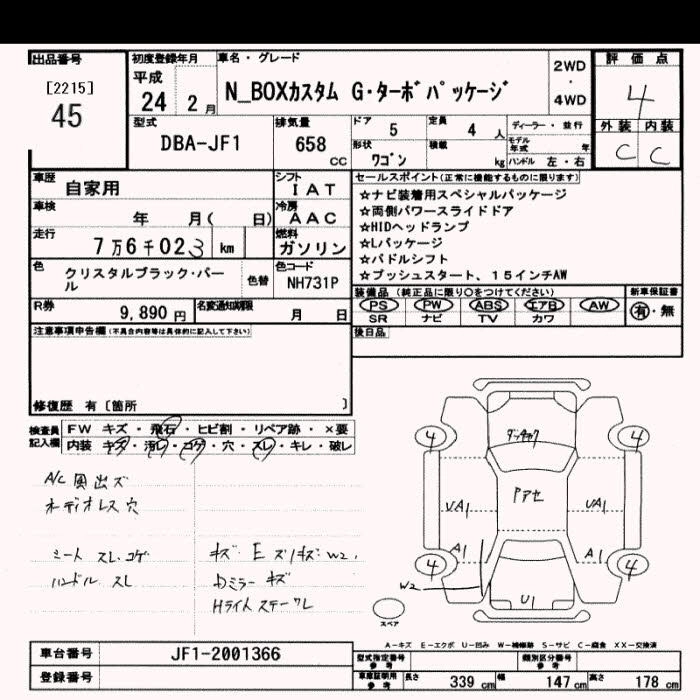 出品番号 初度登録年月 車名・グレード 評価点
[2215] 平成 2WD
45 24 2月 N_BOXカスタム G・ターボパッケージ ・ 4
4WD
型式 排気量 ドア 5 定員 4人 ディーラー・並行 外装 内装
DBA-JF1 658 cc 形状 ワゴン 積載 kg モデル年式 年 ハンドル 左・右 C C
車歴 自家用 シフト IAT セールスポイント(正常に機能するものに限ります)
車検 年 月( 日) 冷房 AAC ☆ナビ装着用スペシャルパッケージ
☆両側パワースライドドア
走行 7万6千023 km 燃料 ガソリン ☆HIDヘッドランプ
☆Lパッケージ
色 クリスタルブラック・パール 色替 色コード NH731P ☆パドルシフト
☆プッシュスタート、15インチAW
R券 9,890円 名変通知期限 月 日 装備品(純正品に限り○をつけてください) 新車保証書
PS PW ABS エアB AW 有・無
SR ナビ TV カワ
注意事項申告欄(不具合内容等は具体的に記入して下さい) 後日品
修復歴 有[箇所 ]
検査員記入欄 FW キズ・飛石・ヒビ割・リペア跡・×要
内装 キズ・汚レ・コゲ・穴・スレ・キレ・破レ
A/C 風出ズ
オーディオレス 穴
シート スレ.コゲ キズ E ズ/キズ W2.
ハンドル スレ Dミラー キズ
Hライト ステー ワレ
4 4
UA1 UA1
A1 A1
4 4
W2 U1
スペア
A-キズ E-エクボ U-凹み W-補修跡 S-サビ C-腐食 XX-交換済
車台番号 JF1-2001366 型式指定番号 参考 類別区分番号 参考
登録番号 車庫証明用 参考 長さ 339cm 幅 147cm 高さ 178cm